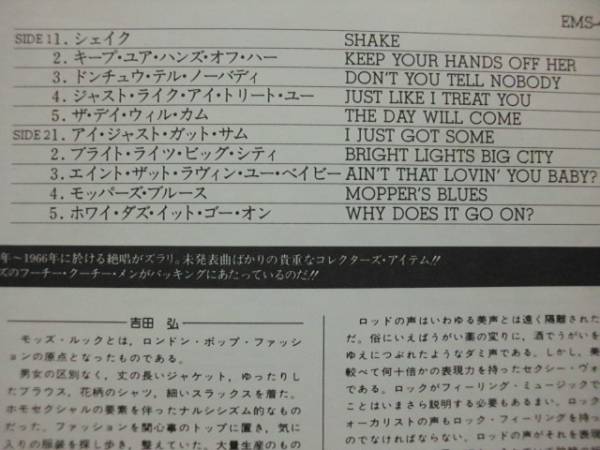 EMS-
SIDE 1 1. シェイク SHAKE
2. キープ・ユア・ハンズ・オフ・ハー KEEP YOUR HANDS OFF HER
3. ドンチュウ・テル・ノーバディ DON'T YOU TELL NOBODY
4. ジャスト・ライク・アイ・トリート・ユー JUST LIKE I TREAT YOU
5. ザ・デイ・ウィル・カム THE DAY WILL COME
SIDE 2 1. アイ・ジャスト・ガット・サム I JUST GOT SOME
2. ブライト・ライツ・ビッグ・シティ BRIGHT LIGHTS BIG CITY
3. エイント・ザット・ラヴィン・ユー・ベイビー AIN'T THAT LOVIN' YOU BABY?
4. モッパーズ・ブルース MOPPER'S BLUES
5. ホワイ・ダズ・イット・ゴー・オン WHY DOES IT GO ON?
年～1966年に於ける絶唱がズラリ。未発表曲ばかりの貴重なコレクターズ・アイテム!!
ズのフーチー・クーチー・メンがバッキングにあたっているのだ!!
吉田 弘
モッズ・ルックとは，ロンドン・ポップ・ファッシ
ョンの原点となったものである。
男女の区別なく，丈の長いジャケット，ゆったりし
たブラウス，花柄のシャツ，細いスラックスを着た。
ホモセクシャルの要素を伴ったナルシシズム的なもの
だった。ファッションを関心事のトップに置き，気に
入りの服装を探し歩き，整えていた。大量生産のもの
ロッドの声はいわゆる美声とは遠く隔離された
だ。俗にいえばうがい薬の変りに，酒でうがいを
ゆえにつぶれたようなダミ声である。しかし，美
較べて何十倍かの表現力を持ったセクシー・ヴォ
である。ロックがフィーリング・ミュージックで
ことはいまさら説明する必要もあるまい。ロック
ォーカリストの声もロック・フィーリングを持っ
のでなければならない。ロッドの声がそれを表現